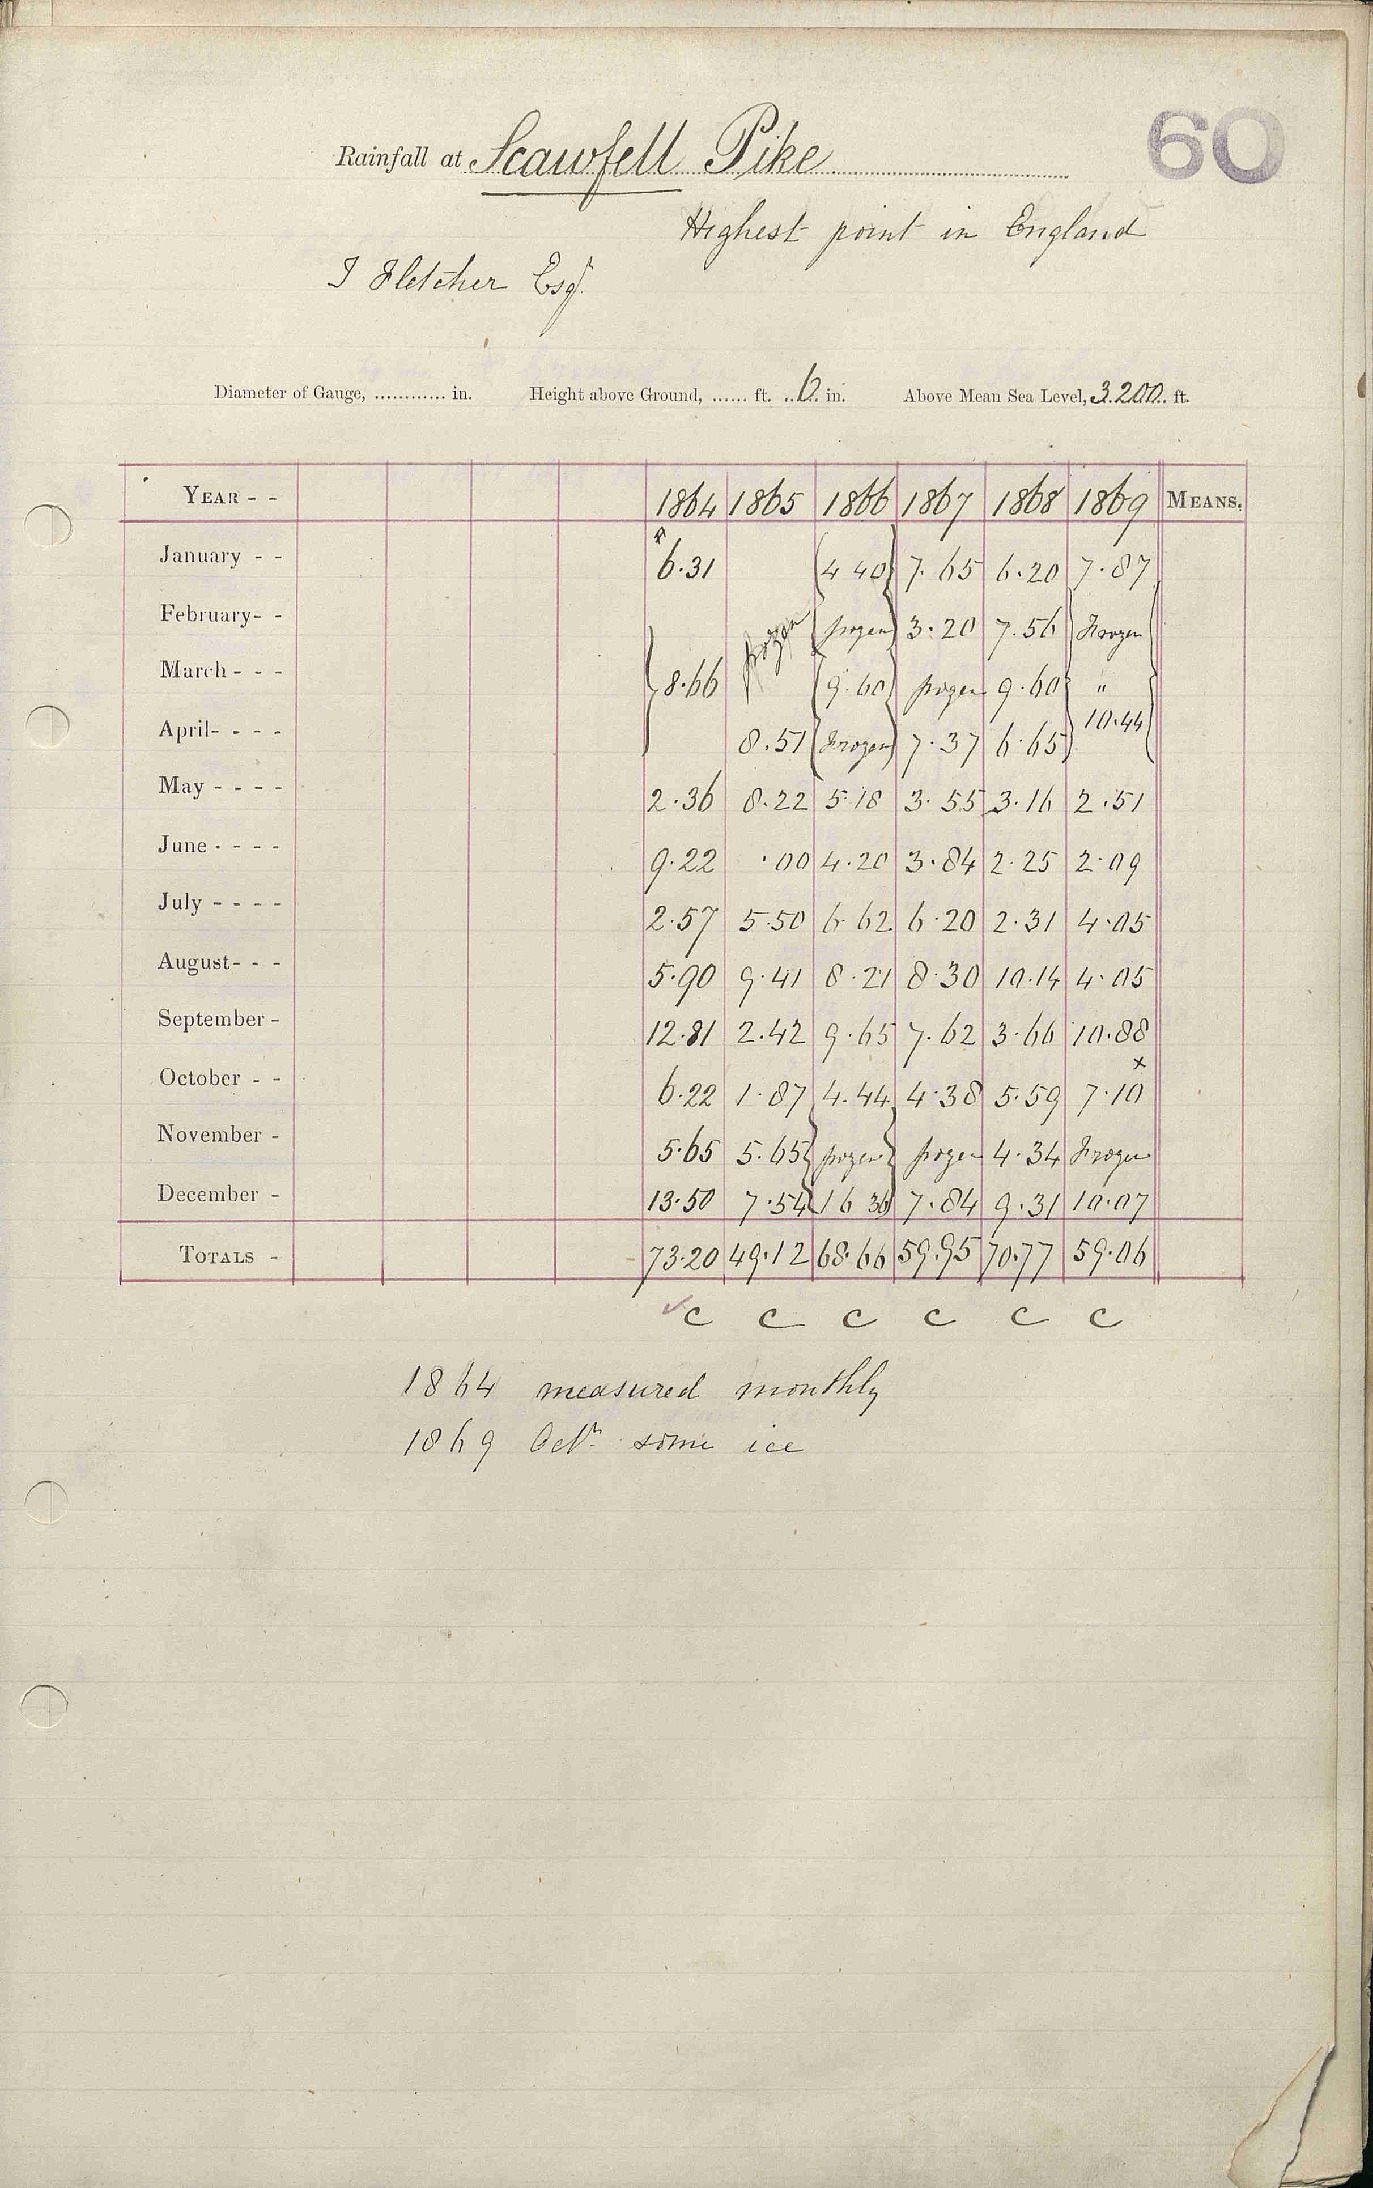 60
Rainfall at Scawfell Pike
Highest point in England
I Fletcher Esqr.
Diameter of Gauge, ............ in. Height above Ground, ...... ft. 6 in. Above Mean Sea Level, 3200 ft.
YEAR - - 1864 1865 1866 1867 1868 1869 MEANS.
January - - 6.31 4 40 7.65 6.20 7.87
February - - frozen frozen 3.20 7.56 Frozen
March - - - 8.66 9.60 frozen 9.60 "
April - - - - 8.51 Frozen 7.37 6.65 10.44
May - - - - 2.36 8.22 5.18 3.55 3.16 2.51
June - - - - 9.22 .00 4.20 3.84 2.25 2.09
July - - - - 2.57 5.50 6.62 6.20 2.31 4.05
August - - - 5.90 9.41 8.21 8.30 10.14 4.05
September - 12.81 2.42 9.65 7.62 3.66 10.88
October - - 6.22 1.87 4.44 4.38 5.59 7.10 x
November - 5.65 5.65 frozen frozen 4.34 Frozen
December - 13.50 7.54 16 36 7.84 9.31 10.07
TOTALS - 73.20 49.12 68.66 59.95 70.77 59.06
✓ C C C C C C
1864 measured monthly
1869 Octr. some ice